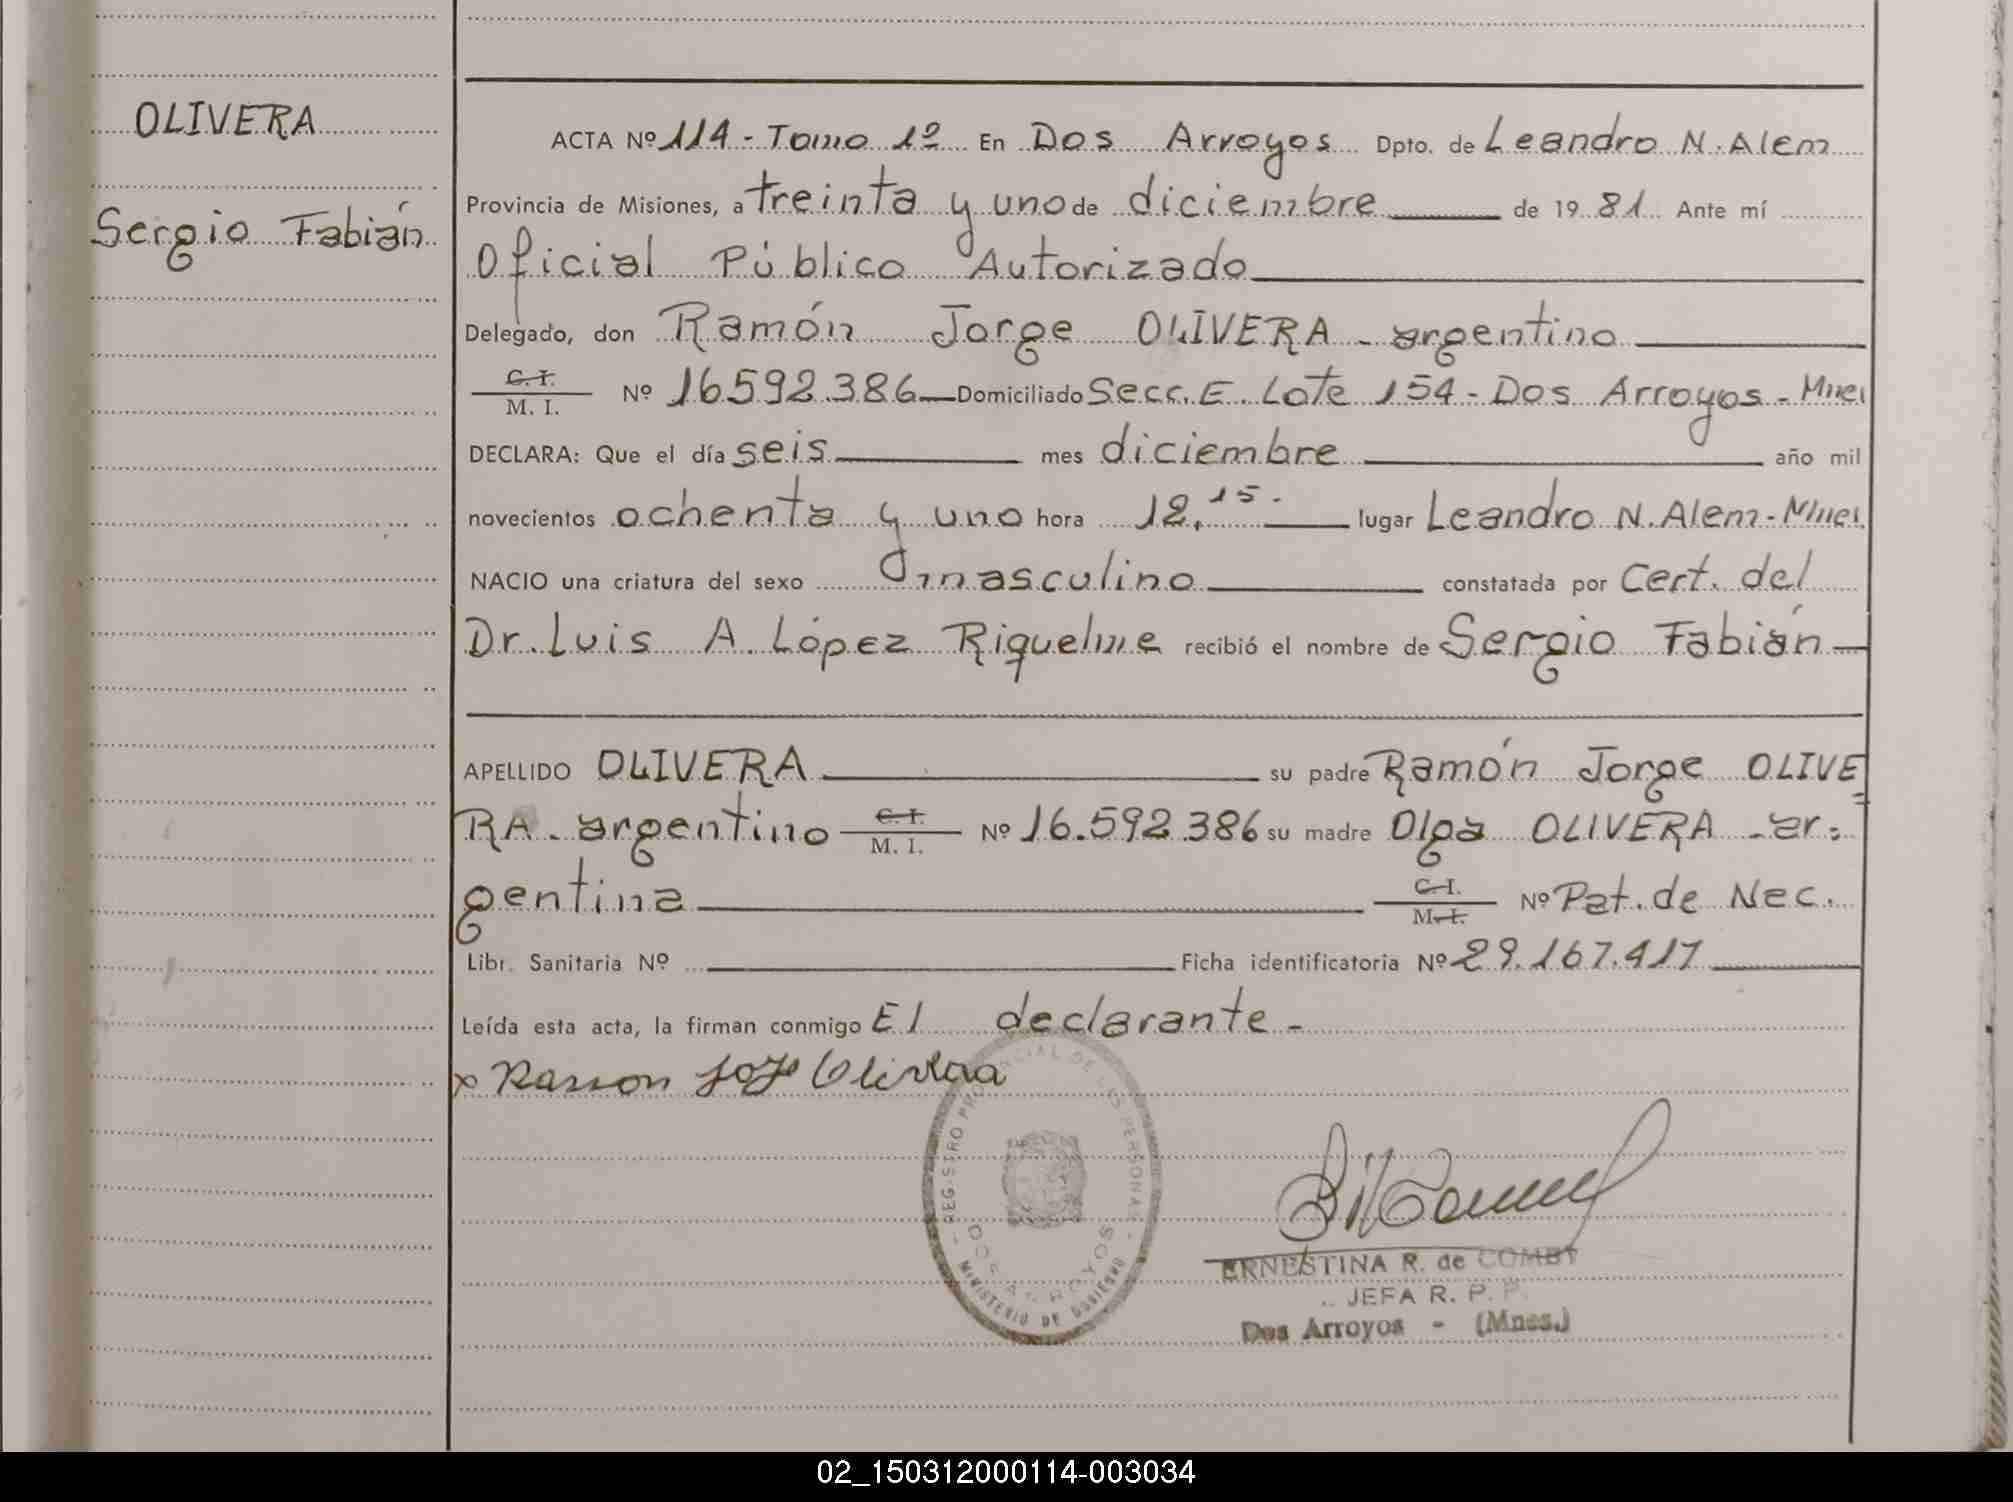 OLIVERA
Sergio Fabián
ACTA Nº 114 - Tomo 1º En Dos Arroyos Dpto. de Leandro N. Alem
Provincia de Misiones, a treinta y uno de diciembre de 1981 Ante mí
Oficial Público Autorizado
Delegado, don Ramón Jorge OLIVERA - argentino
C. I.
M. I. Nº 16.592.386 Domiciliado Secc. E. Lote 154 - Dos Arroyos - Mnes
DECLARA: Que el día seis mes diciembre año mil
novecientos ochenta y uno hora 12,15. lugar Leandro N. Alem - Mnes.
NACIO una criatura del sexo masculino constatada por Cert. del
Dr. Luis A. López Riquelme recibió el nombre de Sergio Fabián
APELLIDO OLIVERA su padre Ramón Jorge OLIVE=
RA. argentino C. I. M. I. Nº 16.592.386 su madre Olga OLIVERA - ar=
gentina C. I. M. I. Nº Pat. de Nec.
Libr. Sanitaria Nº Ficha identificatoria Nº 29.167.417
Leída esta acta, la firman conmigo El declarante -
x Ramon Olivera
REGISTRO PROVINCIAL DE LAS PERSONAS
DOS ARROYOS
MINISTERIO DE GOBIERNO
ERNESTINA R. de COMBY
JEFA R. P. P.
Dos Arroyos - (Mnes.)
02_150312000114-003034